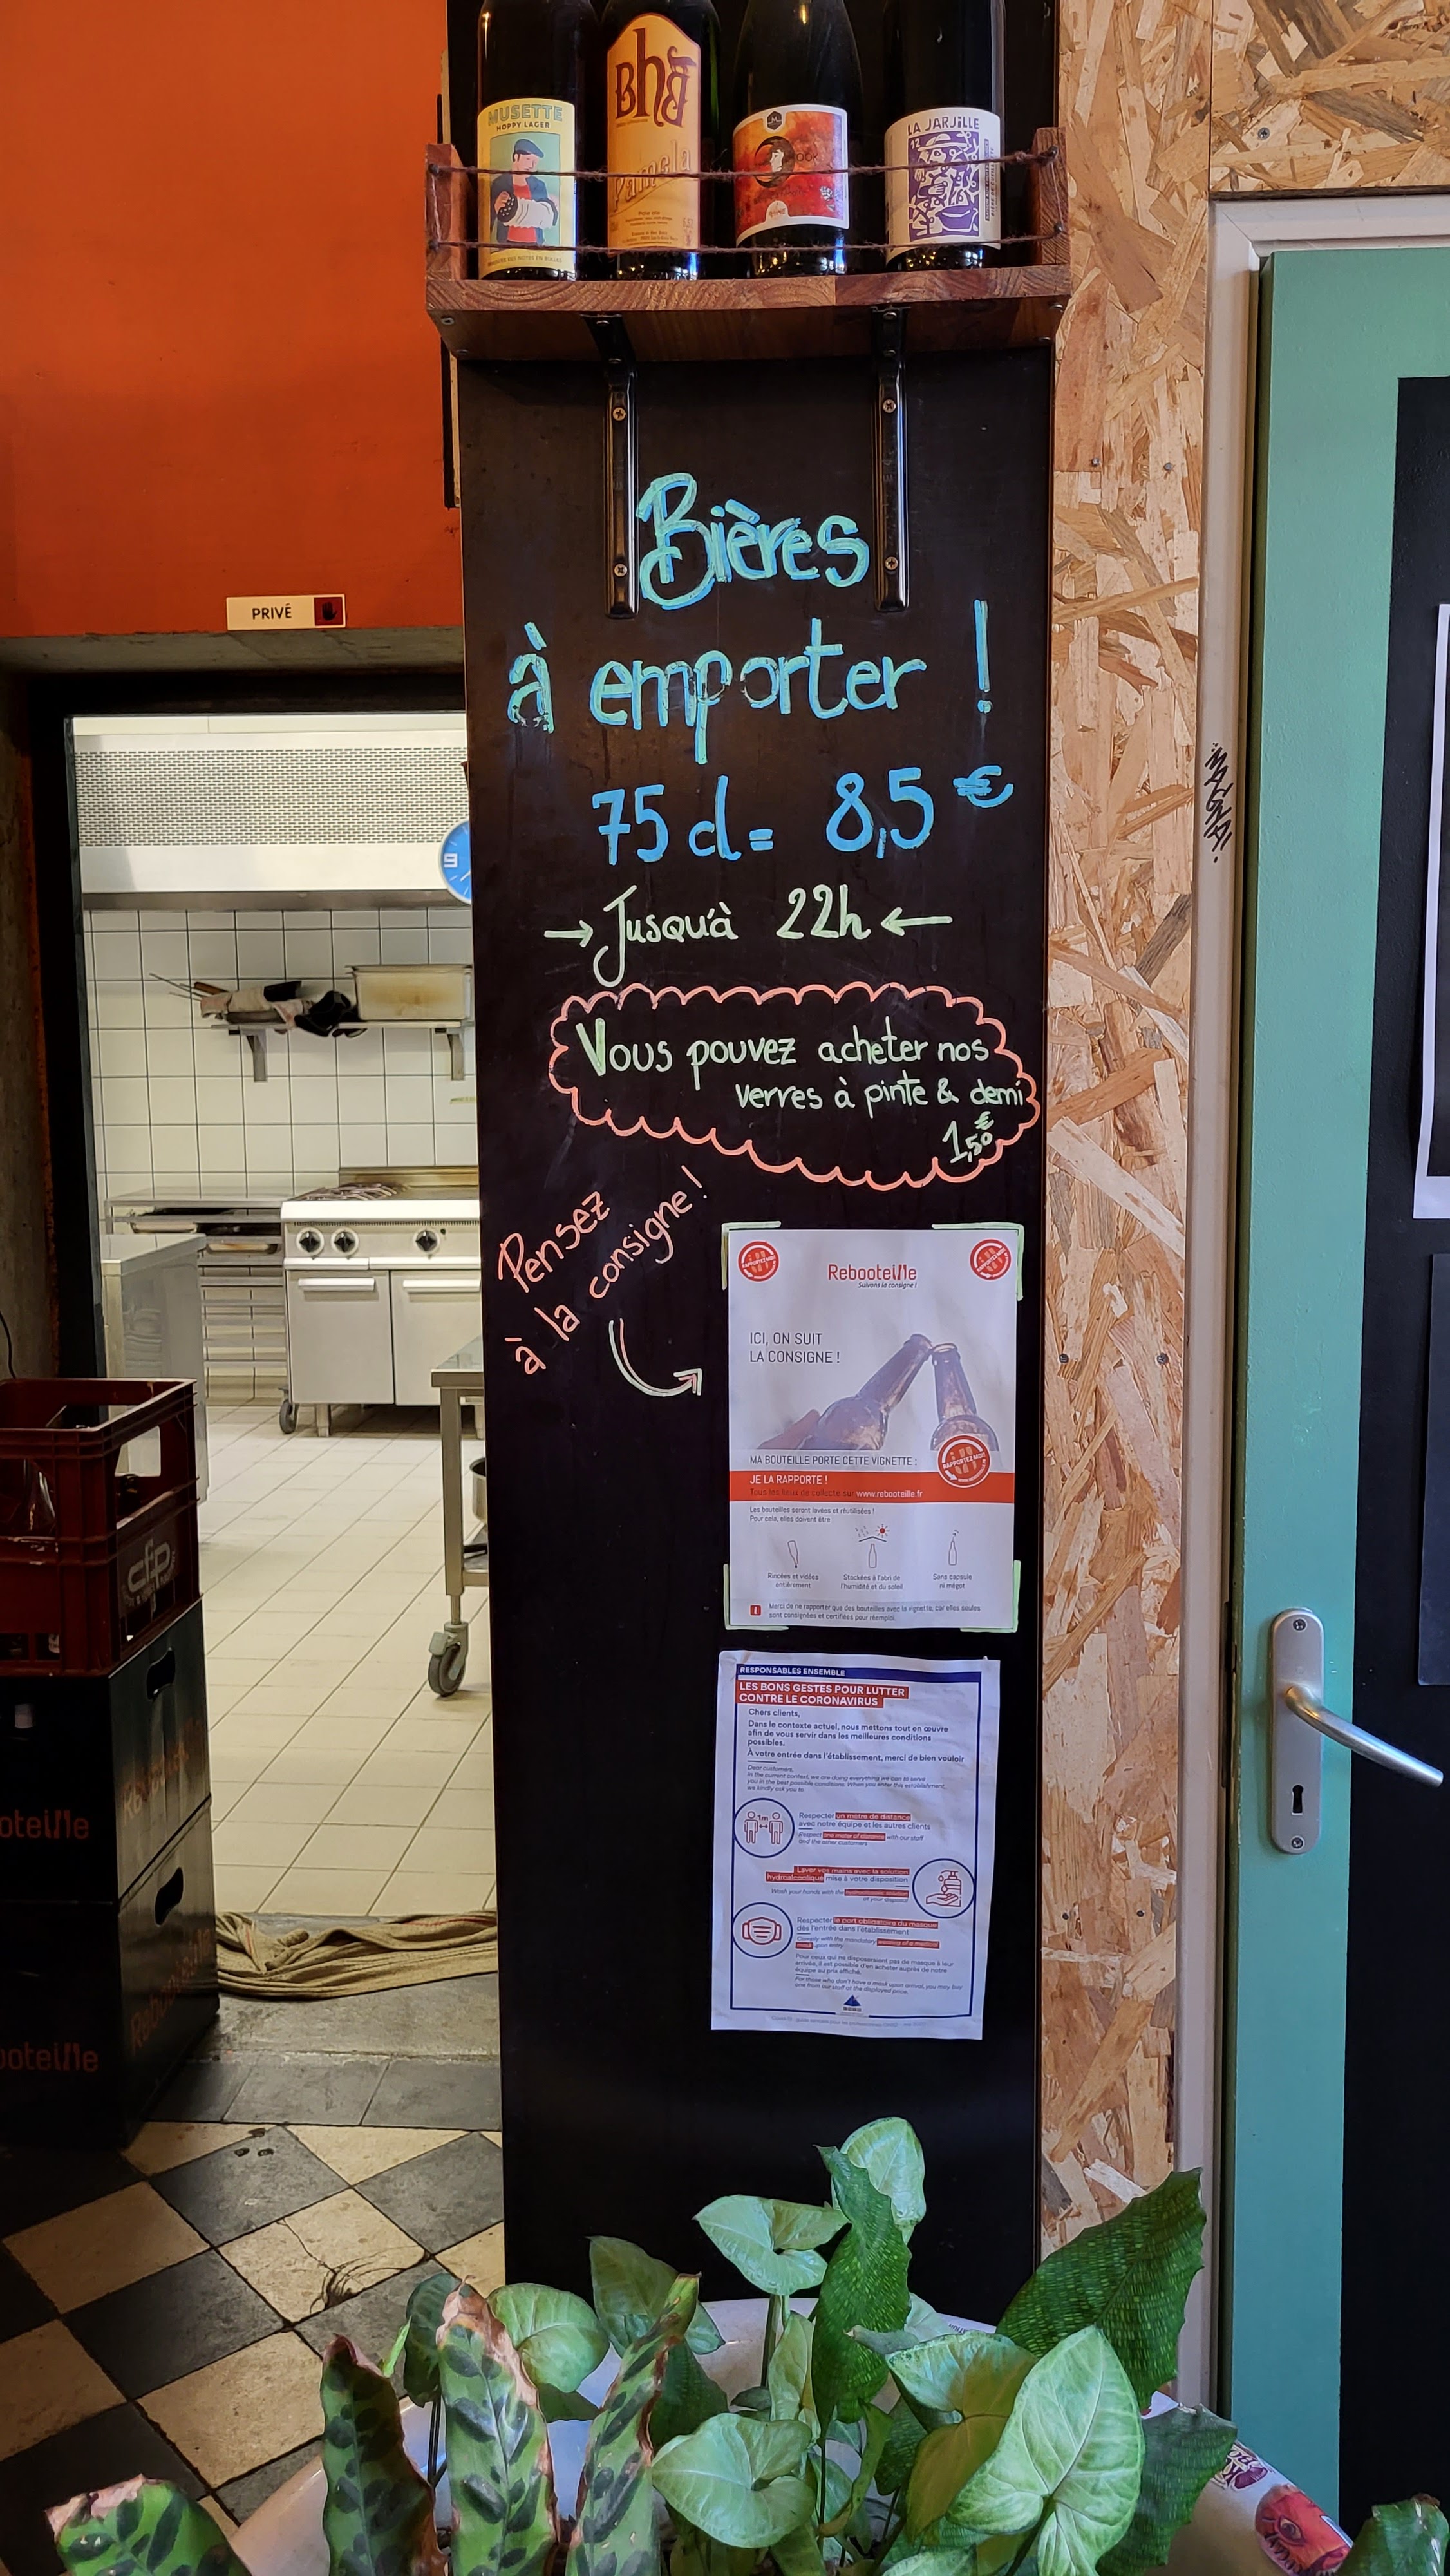 MUSETTE
HOPPY LAGER
BhB
Pamela
LA JARJILLE
12
PRIVÉ
Bières
à emporter !
75 cl = 8,5 €
→ Jusqu'à 22h ←
Vous pouvez acheter nos
verres à pinte & demi
1,50 €
Pensez
à la consigne !
RAPPORTEZ MOI!
Rebooteille
Suivons la consigne !
ICI, ON SUIT
LA CONSIGNE !
MA BOUTEILLE PORTE CETTE VIGNETTE :
RAPPORTEZ MOI!
JE LA RAPPORTE !
Tous les lieux de collecte sur www.rebooteille.fr
Les bouteilles seront lavées et réutilisées !
Pour cela, elles doivent être
Rincées et vidées
entièrement
Stockées à l'abri de
l'humidité et du soleil
Sans capsule
ni mégot
Merci de ne rapporter que des bouteilles avec la vignette, car elles seules
sont consignées et certifiées pour réemploi.
RESPONSABLES ENSEMBLE
LES BONS GESTES POUR LUTTER
CONTRE LE CORONAVIRUS
Chers clients,
Dans le contexte actuel, nous mettons tout en œuvre
afin de vous servir dans les meilleures conditions
possibles.
À votre entrée dans l'établissement, merci de bien vouloir
Dear customers,
In the current context, we are doing everything we can to serve
you in the best possible conditions. When you enter this establishment,
we kindly ask you to:
1m
Respecter un mètre de distance
avec notre équipe et les autres clients
Respect one meter of distance with our staff
and the other customers
Laver vos mains avec la solution
hydroalcoolique mise à votre disposition
Wash your hands with the hydroalcoholic solution
at your disposal
Respecter le port obligatoire du masque
dès l'entrée dans l'établissement
Comply with the mandatory wearing of a medical
mask upon entry
Pour ceux qui ne disposeraient pas de masque à leur
arrivée, il est possible d'en acheter auprès de notre
équipe au prix affiché.
For those who don't have a mask upon arrival, you may buy
one from our staff at the displayed price.
cfp
oteille
Rebooteille
ooteille